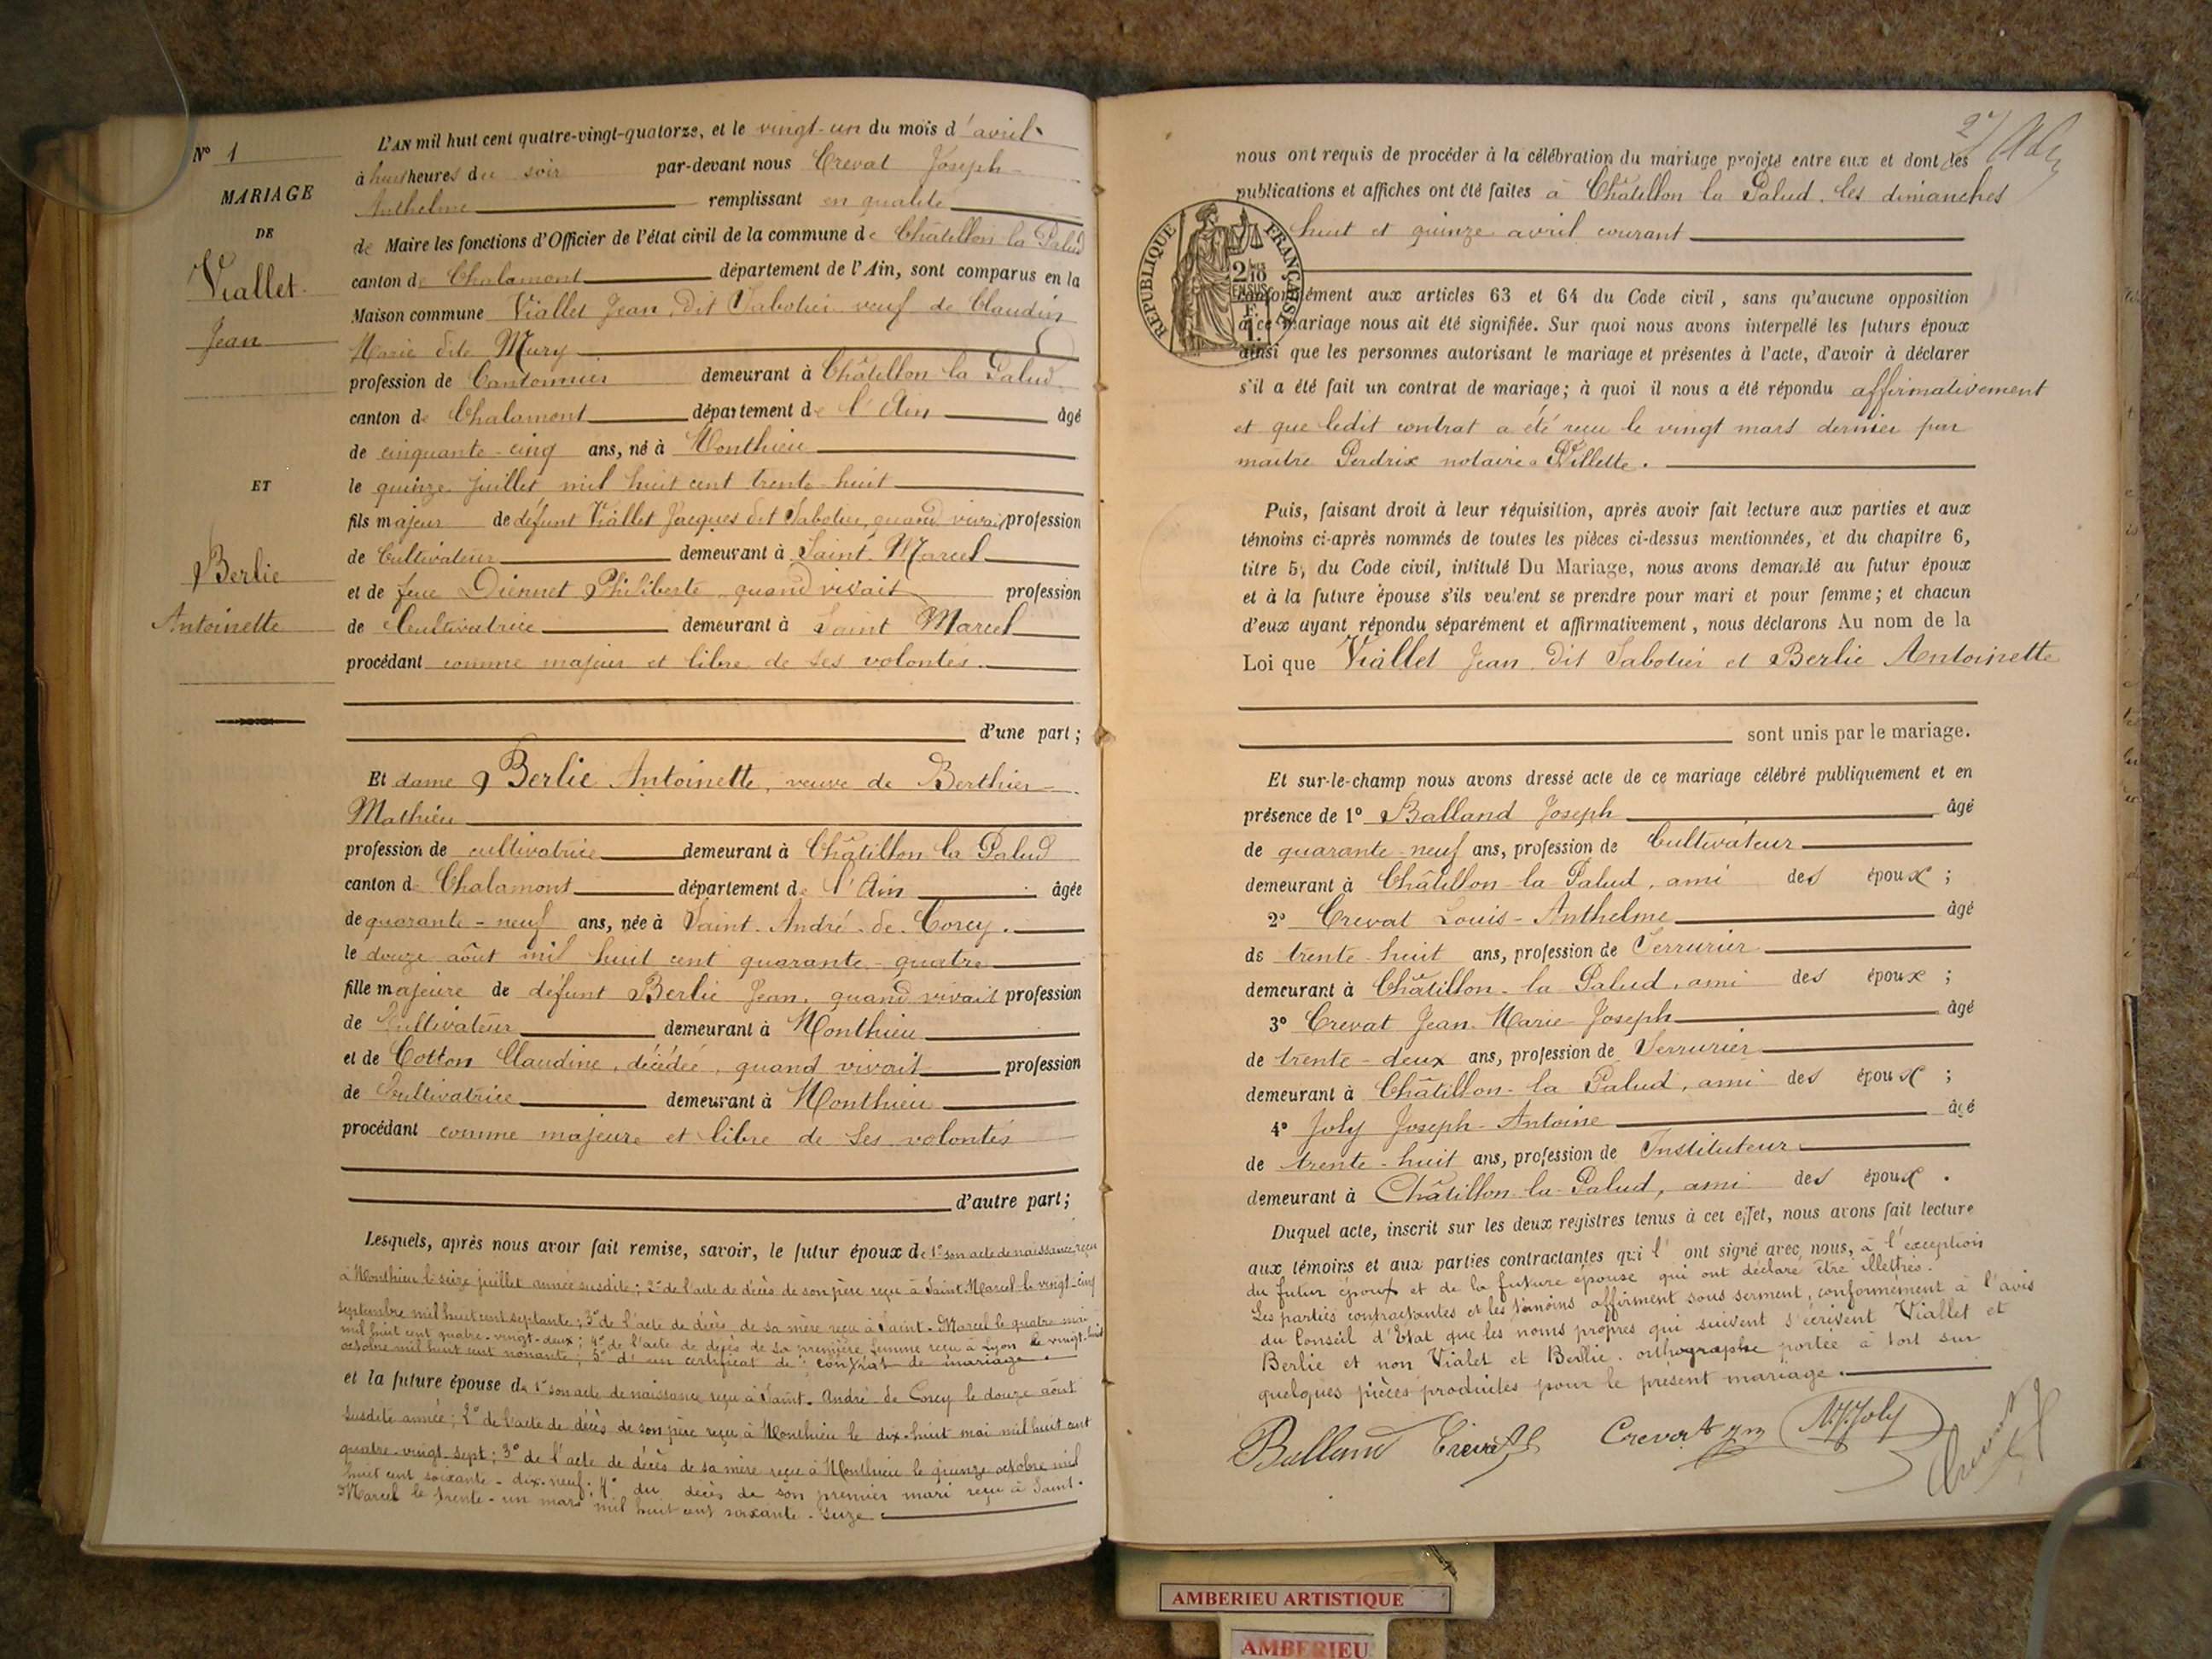 N° 1
MARIAGE
DE
Viallet
Jean
ET
Berlie
Antoinette
L'AN mil huit cent quatre-vingt-quatorze, et le vingt-un du mois d'avril
à huit heures du soir par-devant nous Crevat Joseph
Anthelme remplissant en qualité
de Maire les fonctions d'Officier de l'état civil de la commune de Châtillon la Palud
canton de Chalamont département de l'Ain, sont comparus en la
Maison commune Viallet Jean, dit Sabotier veuf de Claudin
Marie dite Mury
profession de Cantonnier demeurant à Châtillon la Palud
canton de Chalamont département de l'Ain âgé
de cinquante-cinq ans, né à Monthieu
le quinze juillet mil huit cent trente-huit
fils majeur de défunt Viallet Jacques dit Sabotier, quand vivait profession
de Cultivateur demeurant à Saint-Marcel
et de feue Diennet Philiberte quand vivait profession
de Cultivatrice demeurant à Saint Marcel
procédant comme majeur et libre de ses volontés
d'une part ;
Et dame Berlie Antoinette, veuve de Berthier
Mathieu
profession de cultivatrice demeurant à Châtillon la Palud
canton de Chalamont département de l'Ain âgée
de quarante-neuf ans, née à Saint-André-de-Corcy.
le douze août mil huit cent quarante-quatre
fille majeure de défunt Berlie Jean, quand vivait profession
de Cultivateur demeurant à Monthieu
et de Cotton Claudine, décédée, quand vivait profession
de Cultivatrice demeurant à Monthieu
procédant comme majeure et libre de ses volontés
d'autre part ;
Lesquels, après nous avoir fait remise, savoir, le futur époux de 1° son acte de naissance reçu
à Monthieu le seize juillet année susdite ; 2° de l'acte de décès de son père reçu à Saint-Marcel le vingt-cinq
septembre mil huit cent septante ; 3° de l'acte de décès de sa mère reçu à Saint-Marcel le quatre mai
mil huit cent quatre-vingt-deux ; 4° de l'acte de décès de sa première femme reçu à Lyon le vingt-huit
octobre mil huit cent nonante ; 5° d'un certificat de contrat de mariage.
et la future épouse de 1° son acte de naissance reçu à Saint-André-de Corcy le douze août
susdite année ; 2° de l'acte de décès de son père reçu à Monthieu le dix-huit mai mil huit cent
quatre-vingt-sept ; 3° de l'acte de décès de sa mère reçu à Monthieu le quinze octobre mil
huit cent soixante-dix-neuf ; 4° du décès de son premier mari reçu à Saint-
Marcel le trente-un mars mil huit cent soixante-seize
27
nous ont requis de procéder à la célébration du mariage projeté entre eux et dont les
publications et affiches ont été faites à Châtillon la Palud, les dimanches
huit et quinze avril courant
RÉPUBLIQUE FRANÇAISE
2/10
EN SUS
conformément aux articles 63 et 64 du Code civil, sans qu'aucune opposition
à ce mariage nous ait été signifiée. Sur quoi nous avons interpellé les futurs époux
ainsi que les personnes autorisant le mariage et présentes à l'acte, d'avoir à déclarer
s'il a été fait un contrat de mariage ; à quoi il nous a été répondu affirmativement
et que ledit contrat a été reçu le vingt mars dernier par
maître Perdrix notaire à Villette.
Puis, faisant droit à leur réquisition, après avoir fait lecture aux parties et aux
témoins ci-après nommés de toutes les pièces ci-dessus mentionnées, et du chapitre 6,
titre 5, du Code civil, intitulé Du Mariage, nous avons demandé au futur époux
et à la future épouse s'ils veulent se prendre pour mari et pour femme ; et chacun
d'eux ayant répondu séparément et affirmativement, nous déclarons Au nom de la
Loi que Viallet Jean, dit Sabotier et Berlie Antoinette
sont unis par le mariage.
Et sur-le-champ nous avons dressé acte de ce mariage célébré publiquement et en
présence de 1° Balland Joseph âgé
de quarante-neuf ans, profession de Cultivateur
demeurant à Châtillon-la-Palud, ami des époux ;
2° Crevat Louis-Anthelme âgé
de trente-huit ans, profession de Serrurier
demeurant à Châtillon-la Palud, ami des époux ;
3° Crevat Jean-Marie-Joseph âgé
de trente-deux ans, profession de Serrurier
demeurant à Châtillon-la Palud, ami des époux ;
4° Joly Joseph-Antoine âgé
de trente-huit ans, profession de Instituteur
demeurant à Châtillon-la-Palud, ami des époux.
Duquel acte, inscrit sur les deux registres tenus à cet effet, nous avons fait lecture
aux témoins et aux parties contractantes qui l'ont signé avec nous, à l'exception
du futur époux et de la future épouse qui ont déclaré être illettrés.
Les parties contractantes et les témoins affirment sous serment, conformément à l'avis
du Conseil d'Etat que les noms propres qui suivent s'écrivent Viallet et
Berlie et non Vialet et Bellie. orthographe portée à tort sur
quelques pièces produites pour le présent mariage.
Balland Crevat Crevat Joly Crevat
AMBERIEU ARTISTIQUE
AMBERIEU